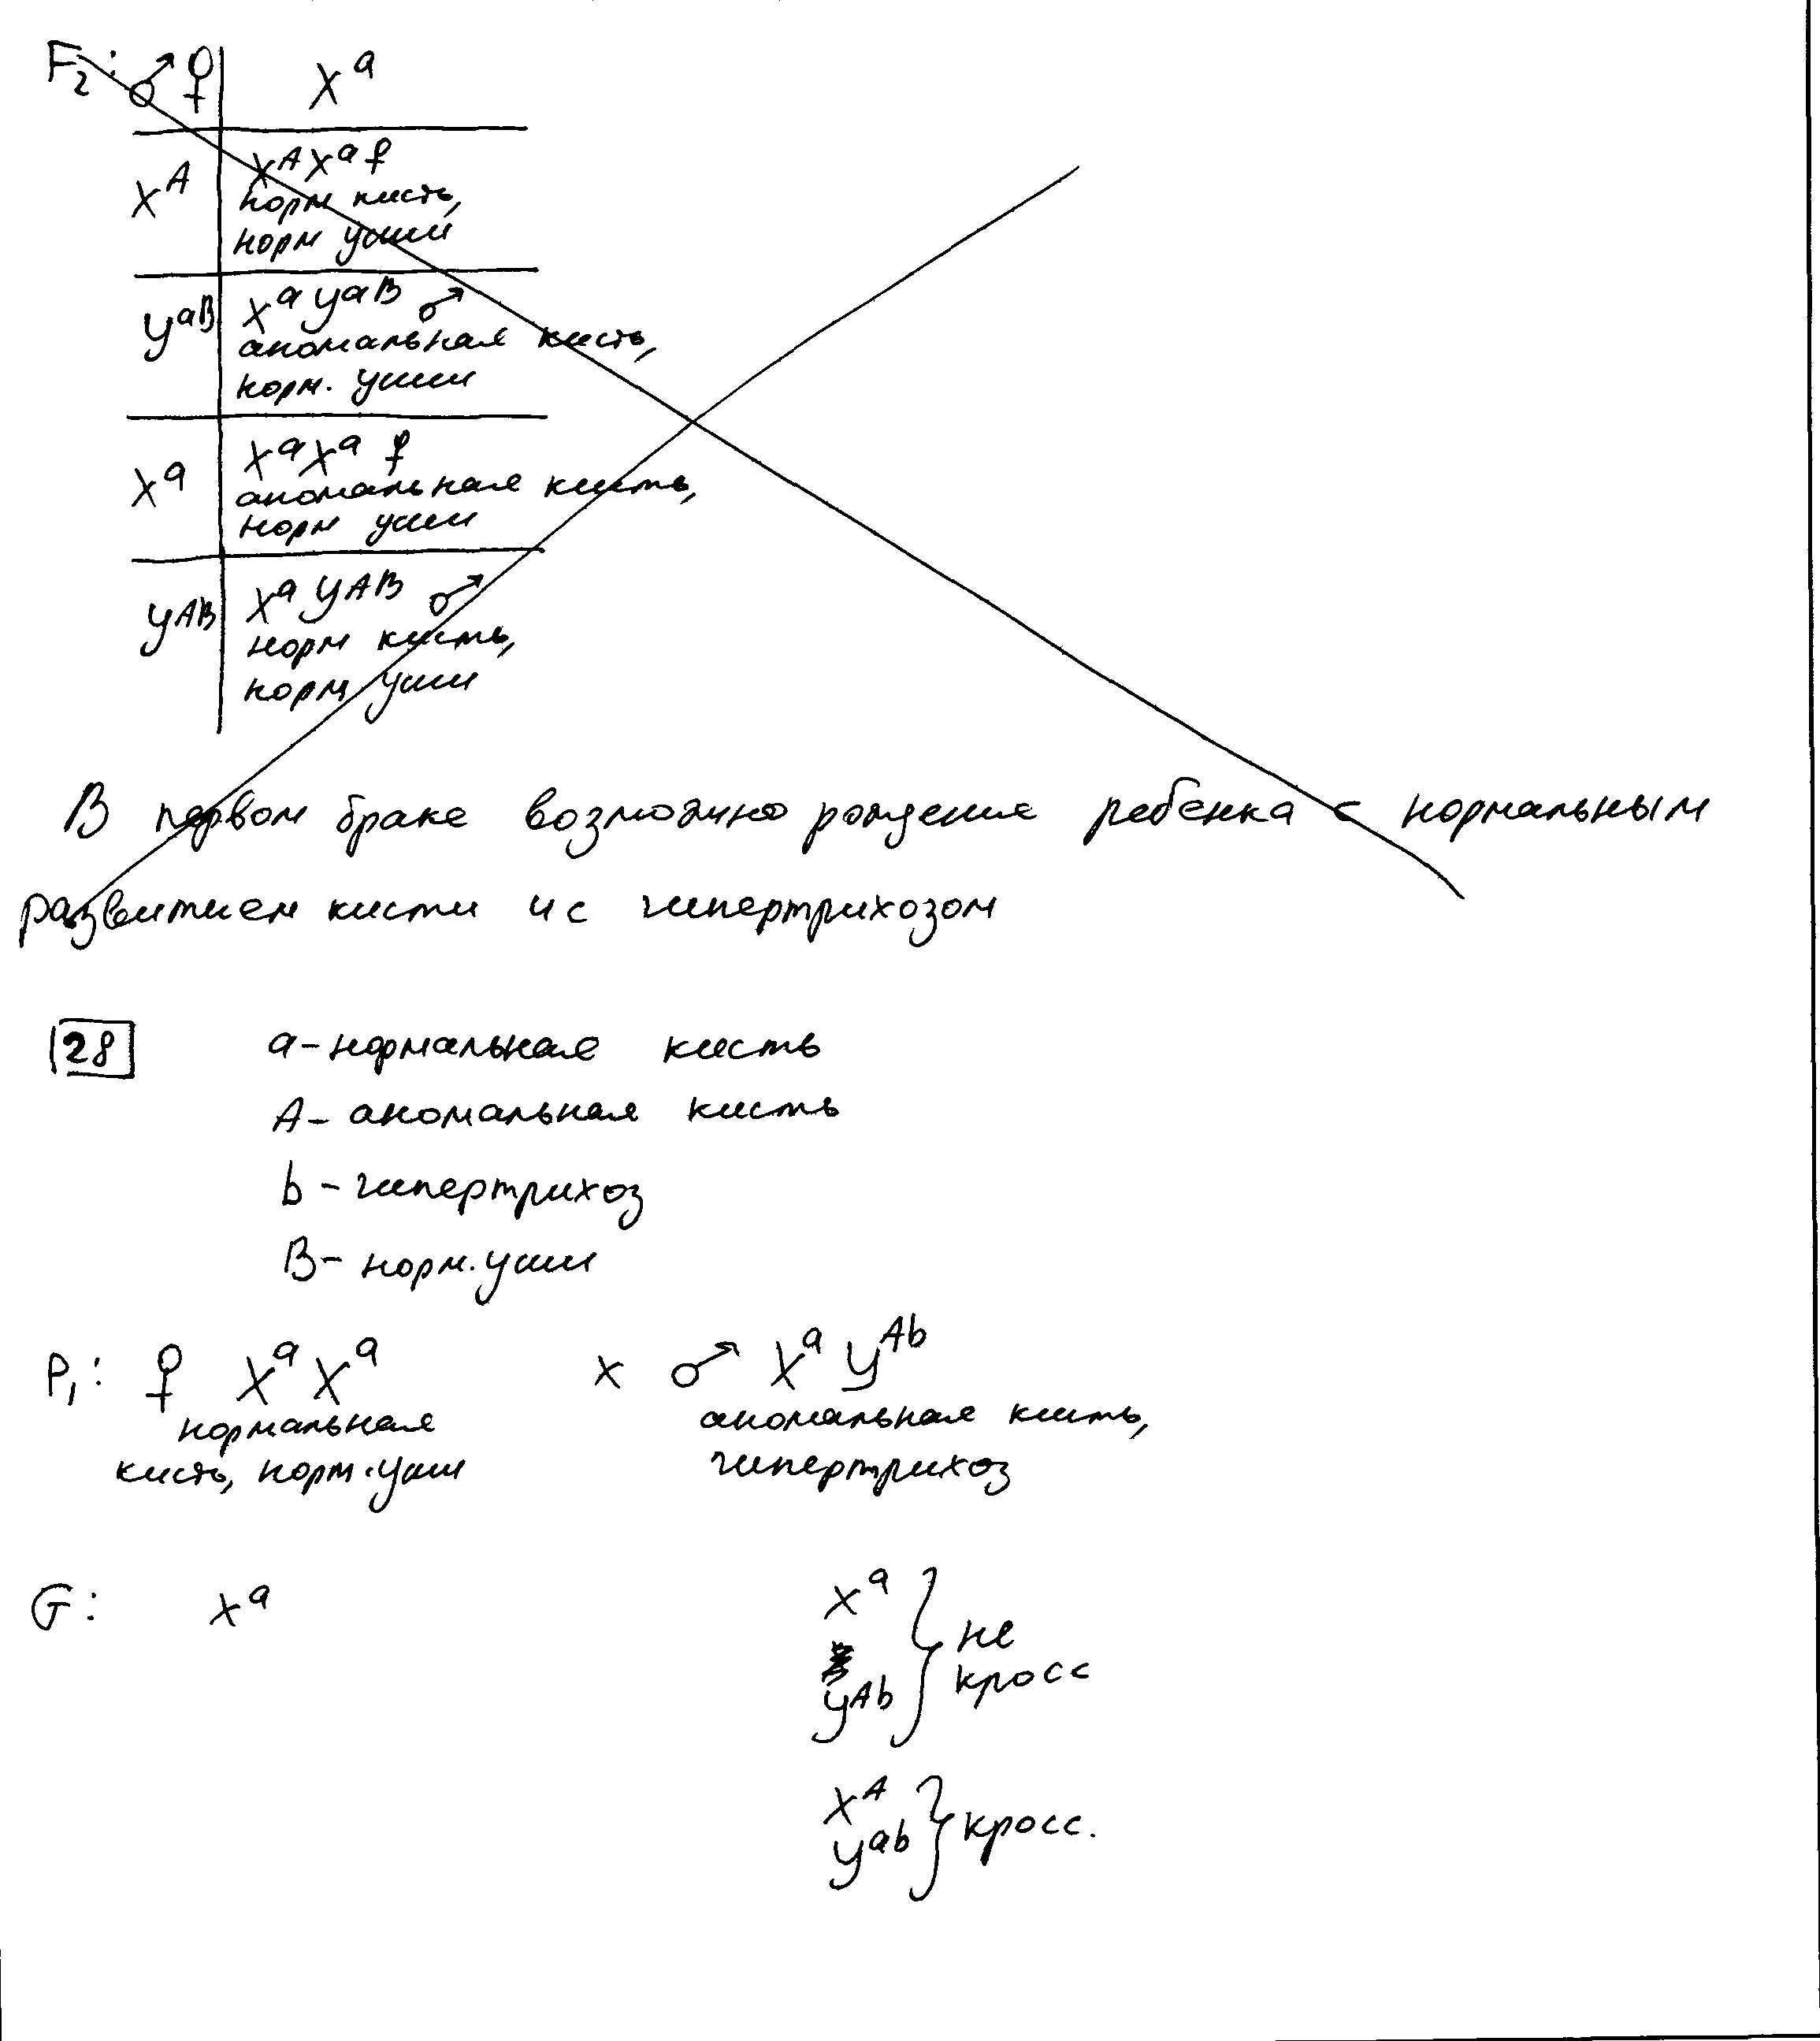 F₂: ♂ ♀ Xᵃ
Xᴬ XᴬXᵃ ♀
норм кисть,
норм уши
YᵃᴮXᵃYᵃᴮ ♂
аномальная кисть,
норм. уши
Xᵃ XᵃXᵃ ♀
аномальная кисть,
норм уши
Yᴬᴮ XᵃYᴬᴮ ♂
норм кисть,
норм уши
В первом браке возможно рождение ребенка с нормальным
развитием кисти и с гипертрихозом
28 a - нормальная кисть
A - аномальная кисть
b - гипертрихоз
B - норм. уши
P₁: ♀ XᵃXᵃ x ♂ XᵃYᴬᵇ
нормальная аномальная кисть,
кисть, норм. уши гипертрихоз
G: Xᵃ Xᵃ
не
Yᴬᵇ кросс
Xᴬ
Yᵃᵇ кросс.